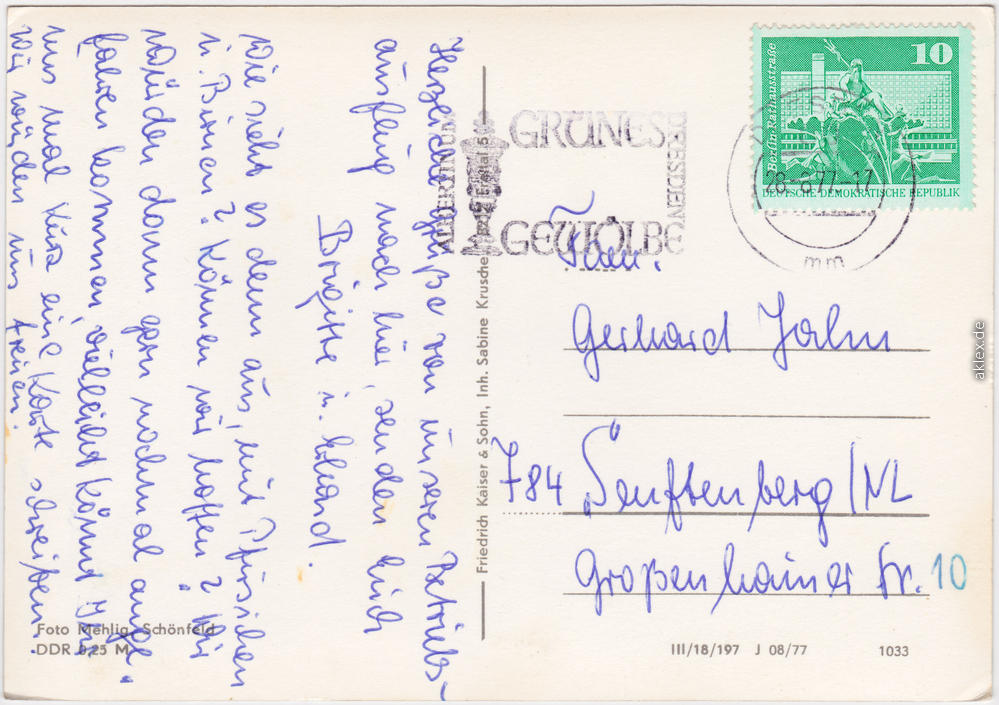 Herzliche Grüße von unseren Betriebs-
ausflug nach hier, senden Euch
Brigitte u. Ehard.
Wie sieht es denn aus, mit Pfirsichen
u. Birnen? Können wir hoffen? Wir
würden dann gern nochmal ange-
fahren kommen, vielleicht könnt Ihr
uns mal kurz eine Karte schreiben.
Wir würden uns freuen.
Foto Mehlig, Schönfeld
DDR 0,25 M
Friedrich Kaiser & Sohn, Inh. Sabine Krusche
ALBERTINUM
GRÜNES
GEWÖLBE
DRESDEN
10
Berlin-Rathausstraße
DEUTSCHE DEMOKRATISCHE REPUBLIK
28.-8.77-17
mm
Fam.
Gerhard Jahn
784 Senftenberg/NL
Großenhainer Str. 10
III/18/197 J 08/77 1033
aklex.de